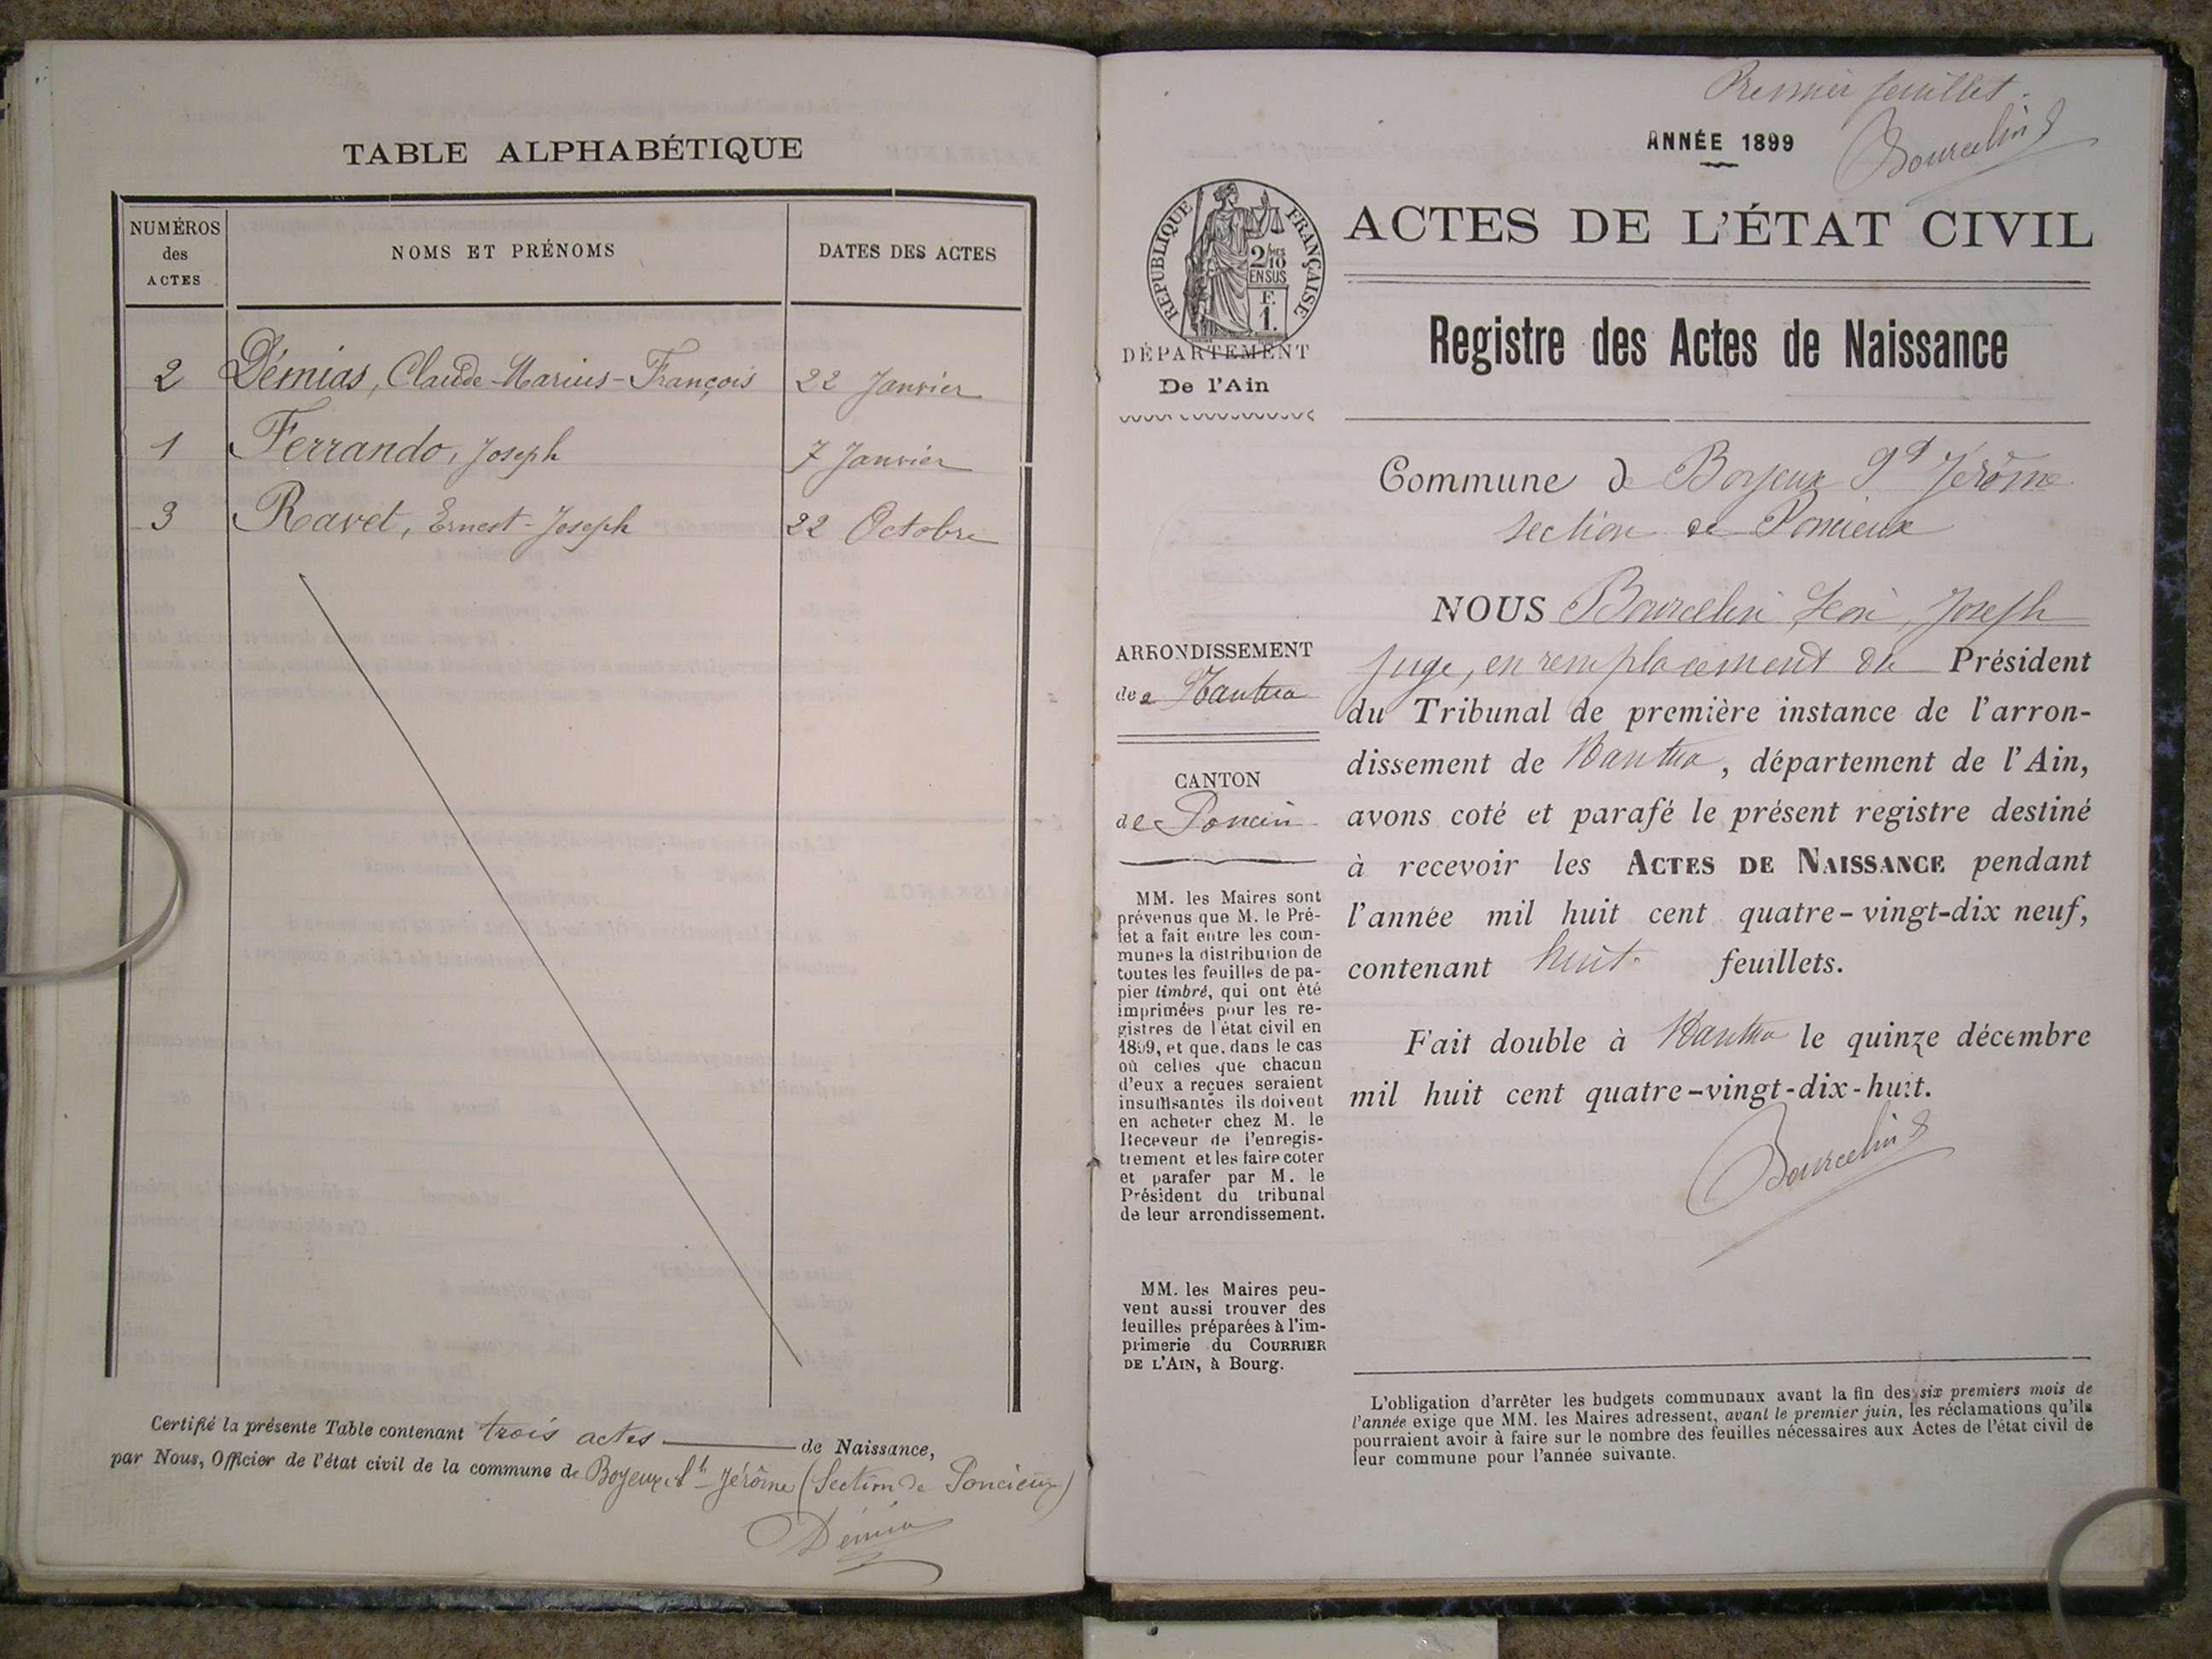 TABLE ALPHABÉTIQUE
NUMÉROS
des
ACTES
NOMS ET PRÉNOMS
DATES DES ACTES
2 Démias, Claude-Marius-François 22 Janvier
1 Ferrando, Joseph 7 Janvier
3 Ravet, Ernest-Joseph 22 Octobre
Certifié la présente Table contenant trois actes de Naissance,
par Nous, Officier de l'état civil de la commune de Boyeux St-Jérôme (Section de Poncieux)
Démia
Premier feuillet.
Bourcelin
ANNÉE 1899
RÉPUBLIQUE FRANÇAISE
2/10
EN SUS
F.
1.
DÉPARTEMENT
De l'Ain
ARRONDISSEMENT
de Nantua
CANTON
de Poncin
MM. les Maires sont
prévenus que M. le Pré-
fet a fait entre les com-
munes la distribution de
toutes les feuilles de pa-
pier timbré, qui ont été
imprimées pour les re-
gistres de l'état civil en
1899, et que, dans le cas
où celles que chacun
d'eux a reçues seraient
insuffisantes ils doivent
en acheter chez M. le
Receveur de l'enregis-
trement et les faire coter
et parafer par M. le
Président du tribunal
de leur arrondissement.
MM. les Maires peu-
vent aussi trouver des
feuilles préparées à l'im-
primerie du COURRIER
DE L'AIN, à Bourg.
ACTES DE L'ÉTAT CIVIL
Registre des Actes de Naissance
Commune de Boyeux St Jérôme
section de Poncieux
NOUS Bourcelin Léon, Joseph
juge, en remplacement du Président
du Tribunal de première instance de l'arron-
dissement de Nantua, département de l'Ain,
avons coté et parafé le présent registre destiné
à recevoir les ACTES DE NAISSANCE pendant
l'année mil huit cent quatre-vingt-dix neuf,
contenant huit feuillets.
Fait double à Nantua le quinze décembre
mil huit cent quatre-vingt-dix-huit.
Bourcelin
L'obligation d'arrêter les budgets communaux avant la fin des six premiers mois de
l'année exige que MM. les Maires adressent, avant le premier juin, les réclamations qu'ils
pourraient avoir à faire sur le nombre des feuilles nécessaires aux Actes de l'état civil de
leur commune pour l'année suivante.